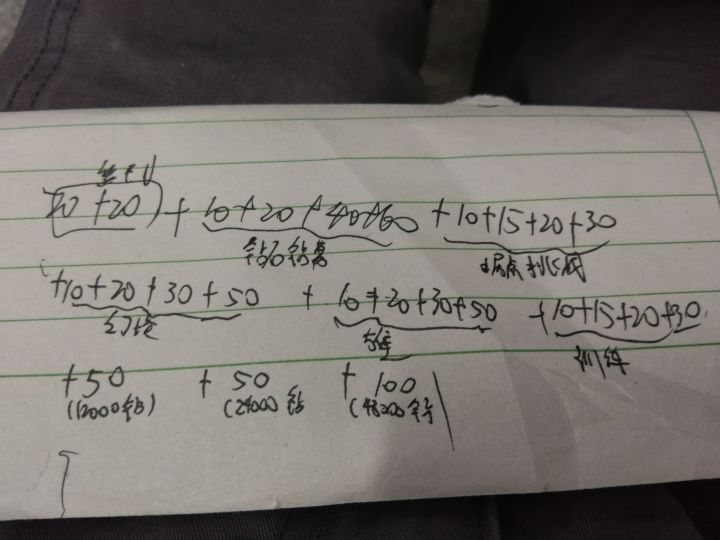 +20) + 10+20+40+60 +10+15+20+30
+10+20+30+50 + 10+20+30+50 +10+15+20+30
幻境 训练
+50 + 50 + 100
(12000钻) (24000钻 (48000钻